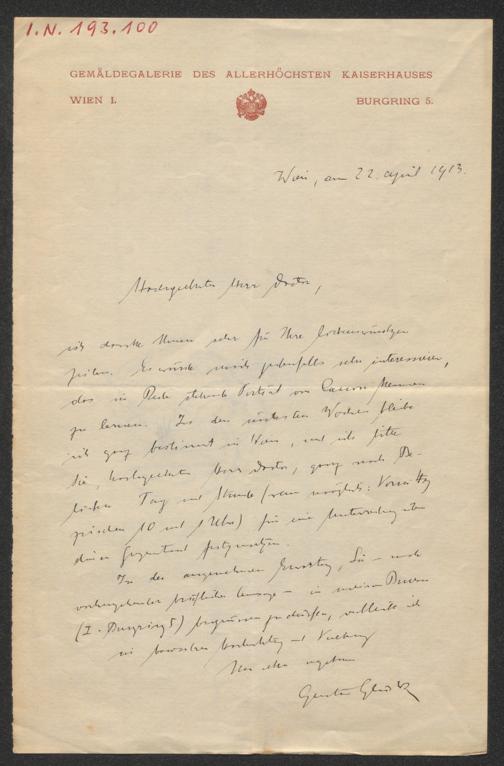 I.N. 193.100
GEMÄLDEGALERIE DES ALLERHÖCHSTEN KAISERHAUSES
WIEN I. BURGRING 5.
Wien, am 22. April 1913.
Hochgeehrter Herr Doktor,
ich danke Ihnen sehr für Ihre liebenswürdigen
Zeilen. Es würde mich jedenfalls sehr interessieren,
das in Rede stehende Porträt von kennen
zu lernen. In den nächsten Wochen bleibe
ich ganz bestimmt in Wien, und ich bitte
Sie hochgeehrter Herr Doktor, ganz nach Be-
lieben Tag und Stunde (wenn möglich: Vormittag
zwischen 10 und 1 Uhr) für eine Unterredung über
diesen Gegenstand festzusetzen.
In der angenehmen Erwartung, Sie – nach
vorhergehender – in meinem Bureau
(I. Burgring 5) begrüssen zu dürfen, verbleibe ich
in
Ihr ergebener
Gustav Glück